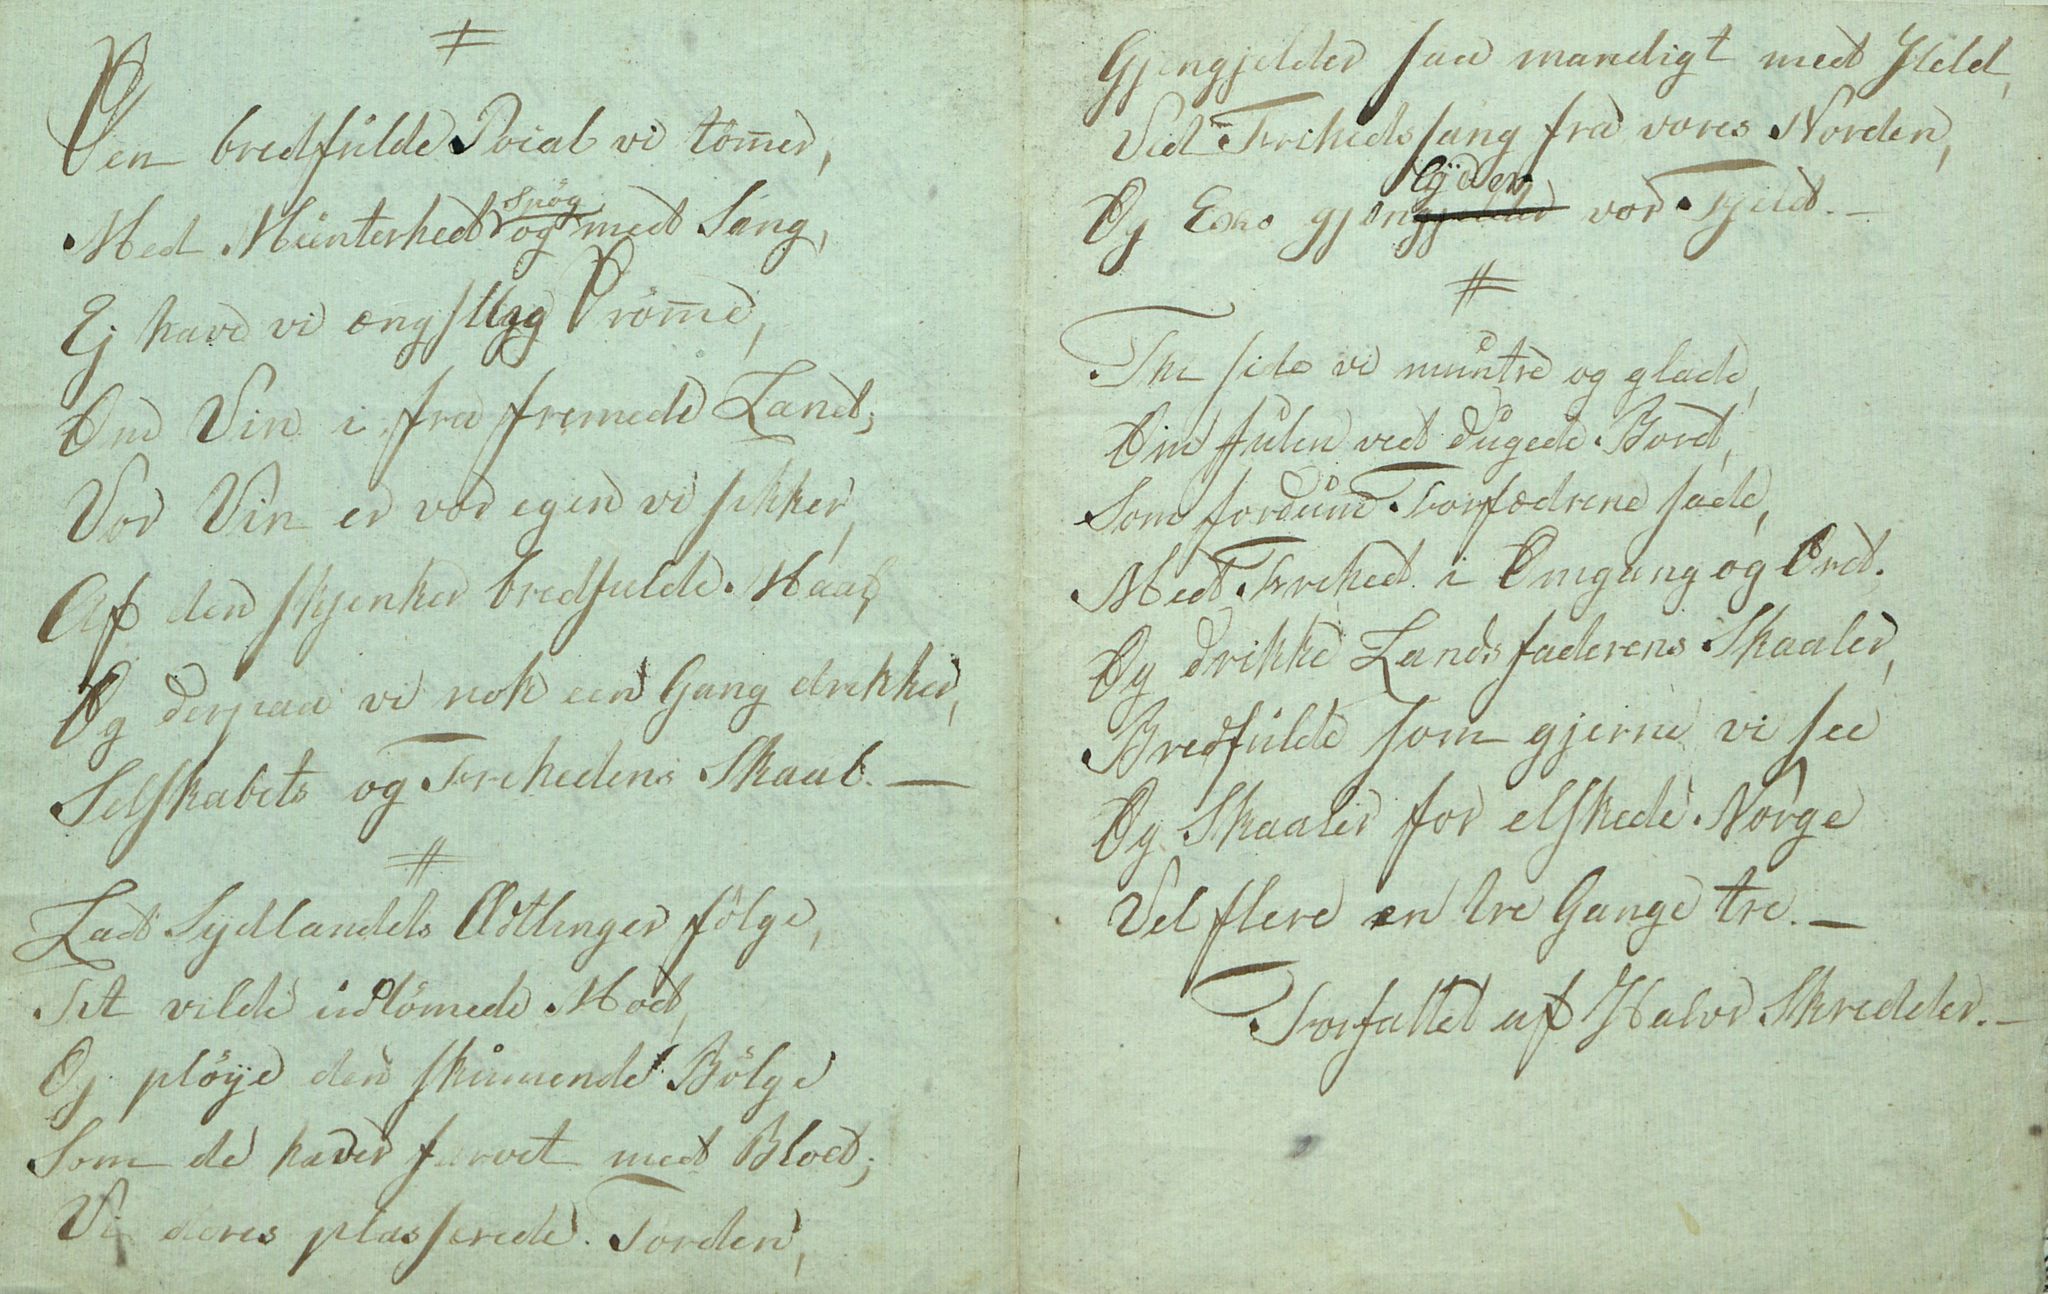 Den bredfulde Pocal vi tömer,
Med Munterhed Spög og med Sang,
Ej have vi ængstlig Drömme,
Om Vin i fra fremede Land;
Vor Vin er vor egen vi sikker,
Af den skjenker bredfulde Maal,
Og derpaa vi nok een Gang drikker,
Selskabets og Frihedens Skaal. —
Lad Sydlandets Ætlinger fölge,
Sit vilde udtömede Mod,
Og plöye den skumende Bölge
Som de haver farvet med Blod;
Vi deres plasserede Torden,
Gjengjelder saa mandigt med Held,
Ved Frihedssang fra vores Norden,
Og Echo gjenlyder vor Fjeld. —
Thi side vi muntre og glade,
Om Julen ved dugede Bord,
Som fordum Forfædrene sade,
Med Frihed i Omgang og Ord.
Og drikke Landsfaderens Skaaler,
Bredfulde som gjerne vi see
Og Skaaler for elskede Norge
Vel flere en tre Gange tre. —
Forfattet af Halvor Skredder. —